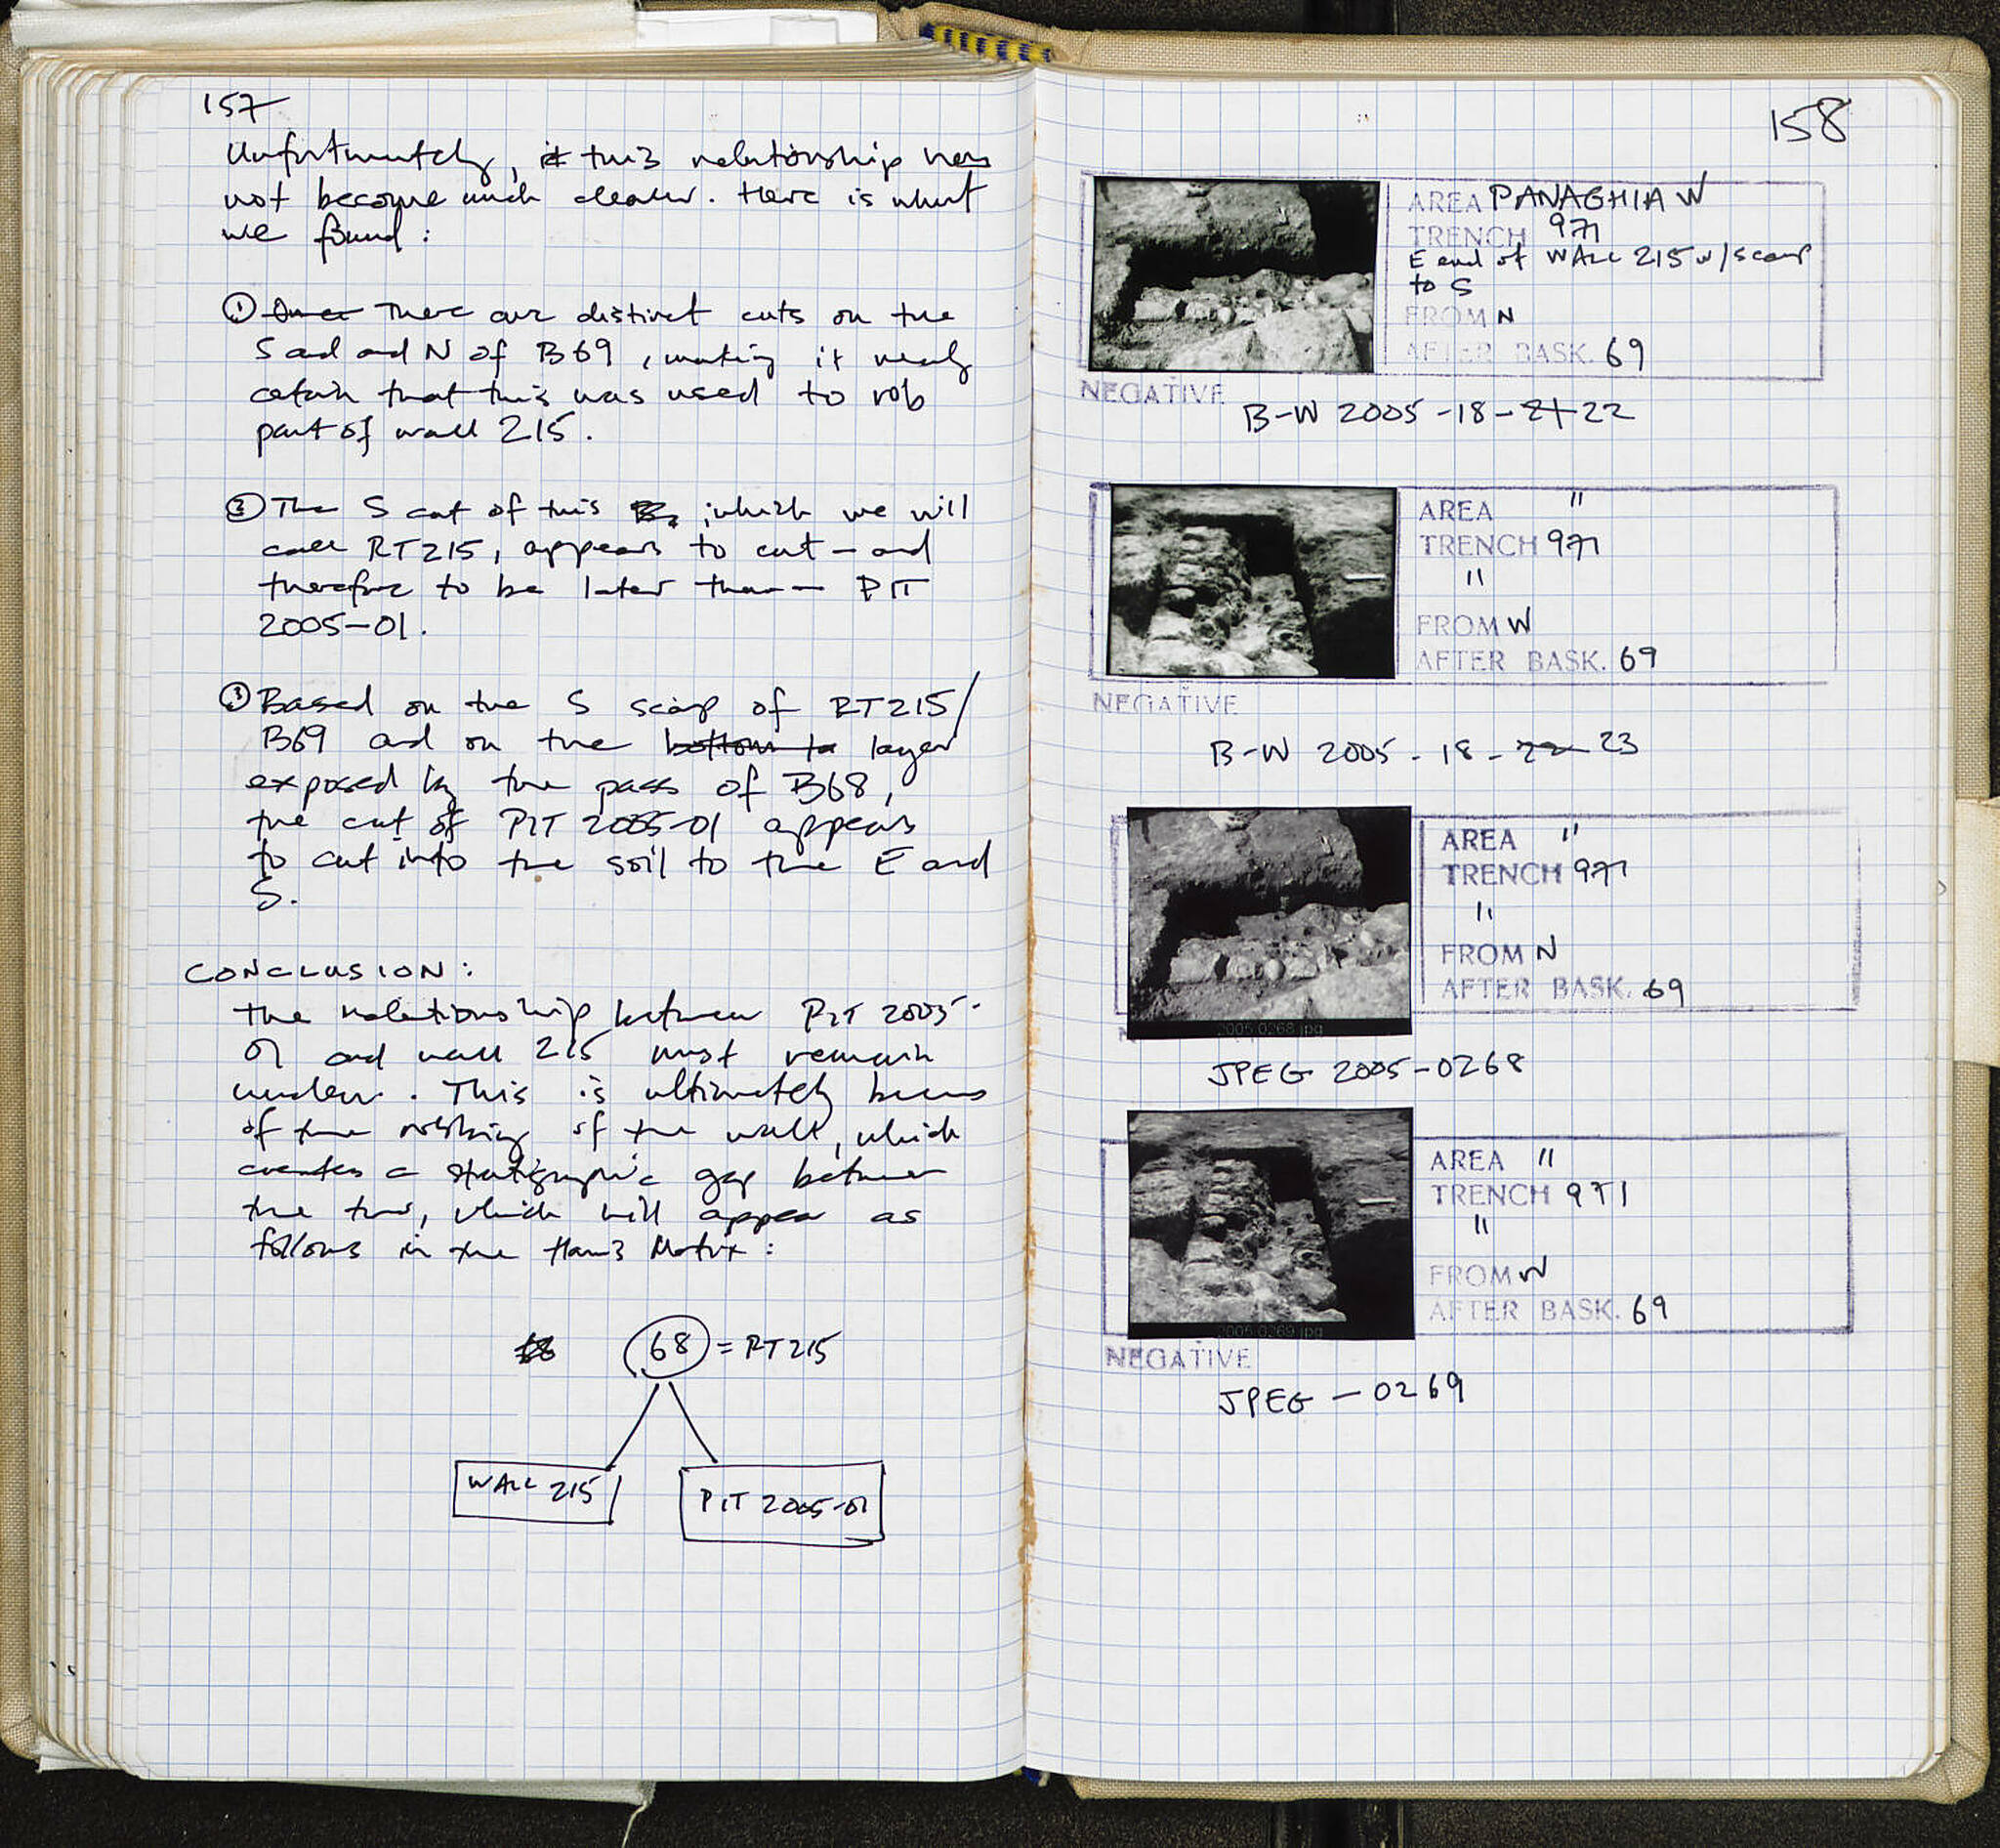 157
Unfortunately, it this relationship has
not become much clearer. Here is what
we found:
① There are distinct cuts on the
S and N of B69, making it nearly
certain that this was used to rob
part of wall 215.
② The S cut of this , which we will
call RT215, appears to cut - and
therefore to be later than - PIT
2005-01.
③ Based on the S scarp of RT215/
B69 and on the bottom la layer
exposed by the pass of B68,
the cut of PIT 2005-01 appears
to cut into the soil to the E and
S.
CONCLUSION:
The relationship between PIT 2005-
01 and wall 215 must remain
unclear. This is ultimately because
of the robbing of the wall, which
creates a stratigraphic gap between
the two, which will appear as
follows in the Harris Matrix:
68 = RT215
WALL 215
PIT 2005-01
158
AREA PANAGHIA W
TRENCH 971
E end of WALL 215 w/scarp
to S
FROM N
AFTER BASK. 69
NEGATIVE
B-W 2005-18-21 22
AREA "
TRENCH 971
"
FROM W
AFTER BASK. 69
NEGATIVE
B-W 2005-18-22 23
AREA "
TRENCH 971
"
FROM N
AFTER BASK. 69
2005-0268.jpg
JPEG 2005-0268
AREA "
TRENCH 971
"
FROM W
AFTER BASK. 69
2005-0269.jpg
NEGATIVE
JPEG -0269